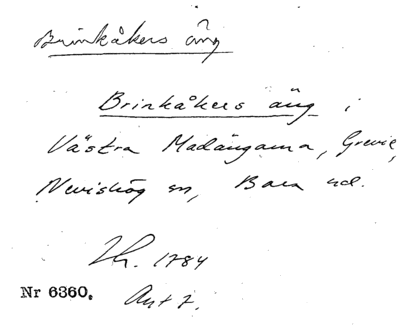 Brinkåkers äng
Brinkåkers äng i
Västra Madängarna, Grevie,
Nevishög sn, Bara hd.
1784
Nr 6360. Akt 7.